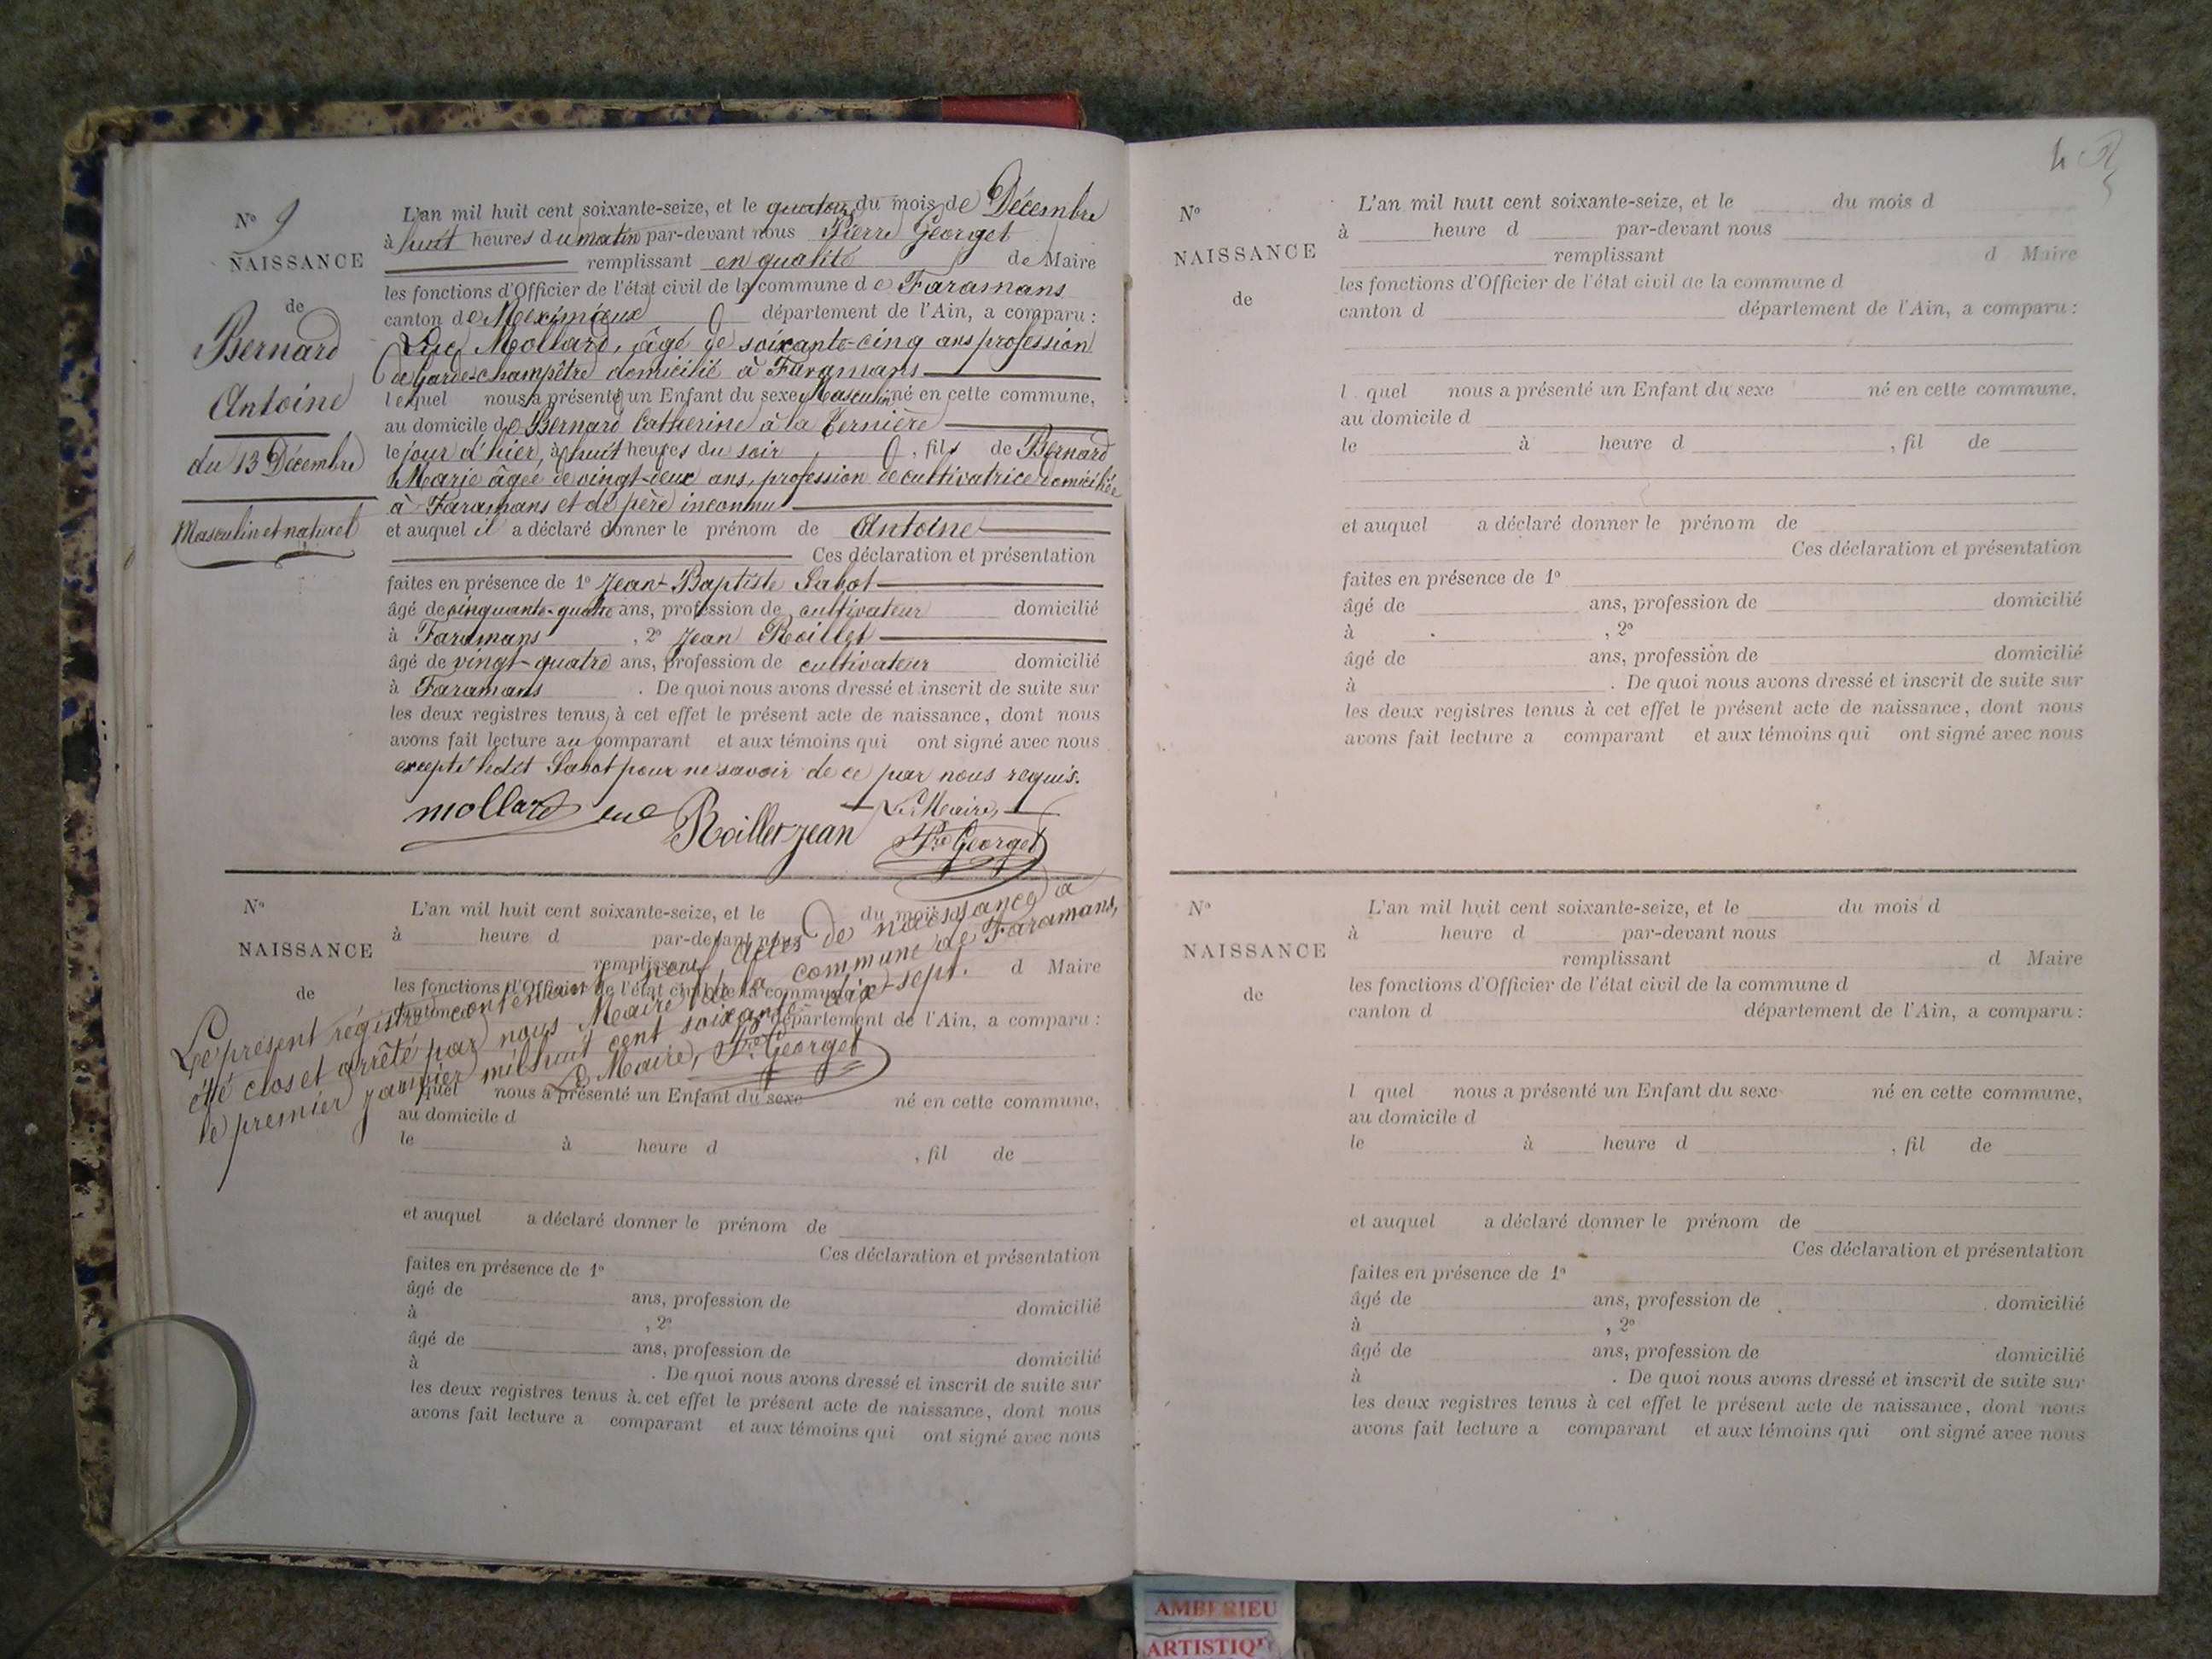 N° 9
NAISSANCE
de
Bernard
Antoine
du 13 Décembre
Masculin et naturel
L'an mil huit cent soixante-seize, et le quatorze du mois de Décembre
à huit heures du matin par-devant nous Pierre Georget
remplissant en qualité de Maire
les fonctions d'Officier de l'état civil de la commune de Faramans
canton de Meximieux département de l'Ain, a comparu :
Luc Mollard, âgé de soixante-cinq ans profession
de Garde-champêtre domicilié à Faramans
lequel nous a présenté un Enfant du sexe Masculin né en cette commune,
au domicile de Bernard Catherine à la
le jour d'hier, à huit heures du soir, fils de Bernard
Marie âgée de vingt-deux ans, profession de cultivatrice domiciliée
à Faramans et de père inconnu
et auquel il a déclaré donner le prénom de Antoine
Ces déclaration et présentation
faites en présence de 1° Jean-Baptiste Sabot
âgé de cinquante-quatre ans, profession de cultivateur domicilié
à Faramans, 2° Jean Roillet
âgé de vingt-quatre ans, profession de cultivateur domicilié
à Faramans. De quoi nous avons dressé et inscrit de suite sur
les deux registres tenus à cet effet le présent acte de naissance, dont nous
avons fait lecture au comparant et aux témoins qui ont signé avec nous
excepté ledit Sabot pour ne savoir de ce par nous requis.
mollard luc
Roillet jean
Le Maire,
Pre Georget
N°
NAISSANCE
de
L'an mil huit cent soixante-seize, et le du mois
à heure d par-devant nous
remplissant d Maire
les fonctions d'Officier de l'état civil de la commune
canton département de l'Ain, a comparu :
Le présent régistre contenant neuf actes de naissance a
été clos et arrêté par nous Maire de la commune de Faramans,
le premier janvier mil huit cent soixante-dix-sept.
Le Maire, Pre Georget
quel nous a présenté un Enfant du sexe né en cette commune,
au domicile d
le à heure d , fil de
et auquel a déclaré donner le prénom de
Ces déclaration et présentation
faites en présence de 1°
âgé de ans, profession de domicilié
à , 2°
âgé de ans, profession de domicilié
à . De quoi nous avons dressé et inscrit de suite sur
les deux registres tenus à cet effet le présent acte de naissance, dont nous
avons fait lecture a comparant et aux témoins qui ont signé avec nous
N°
NAISSANCE
de
L'an mil huit cent soixante-seize, et le du mois d
à heure d par-devant nous
remplissant d Maire
les fonctions d'Officier de l'état civil de la commune d
canton d département de l'Ain, a comparu :
l quel nous a présenté un Enfant du sexe né en cette commune,
au domicile d
le à heure d , fil de
et auquel a déclaré donner le prénom de
Ces déclaration et présentation
faites en présence de 1°
âgé de ans, profession de domicilié
à , 2°
âgé de ans, profession de domicilié
à . De quoi nous avons dressé et inscrit de suite sur
les deux registres tenus à cet effet le présent acte de naissance, dont nous
avons fait lecture a comparant et aux témoins qui ont signé avec nous
N°
NAISSANCE
de
L'an mil huit cent soixante-seize, et le du mois d
à heure d par-devant nous
remplissant d Maire
les fonctions d'Officier de l'état civil de la commune d
canton d département de l'Ain, a comparu :
l quel nous a présenté un Enfant du sexe né en cette commune,
au domicile d
le à heure d , fil de
et auquel a déclaré donner le prénom de
Ces déclaration et présentation
faites en présence de 1°
âgé de ans, profession de domicilié
à , 2°
âgé de ans, profession de domicilié
à . De quoi nous avons dressé et inscrit de suite sur
les deux registres tenus à cet effet le présent acte de naissance, dont nous
avons fait lecture a comparant et aux témoins qui ont signé avec nous
AMBERIEU
ARTISTIQ